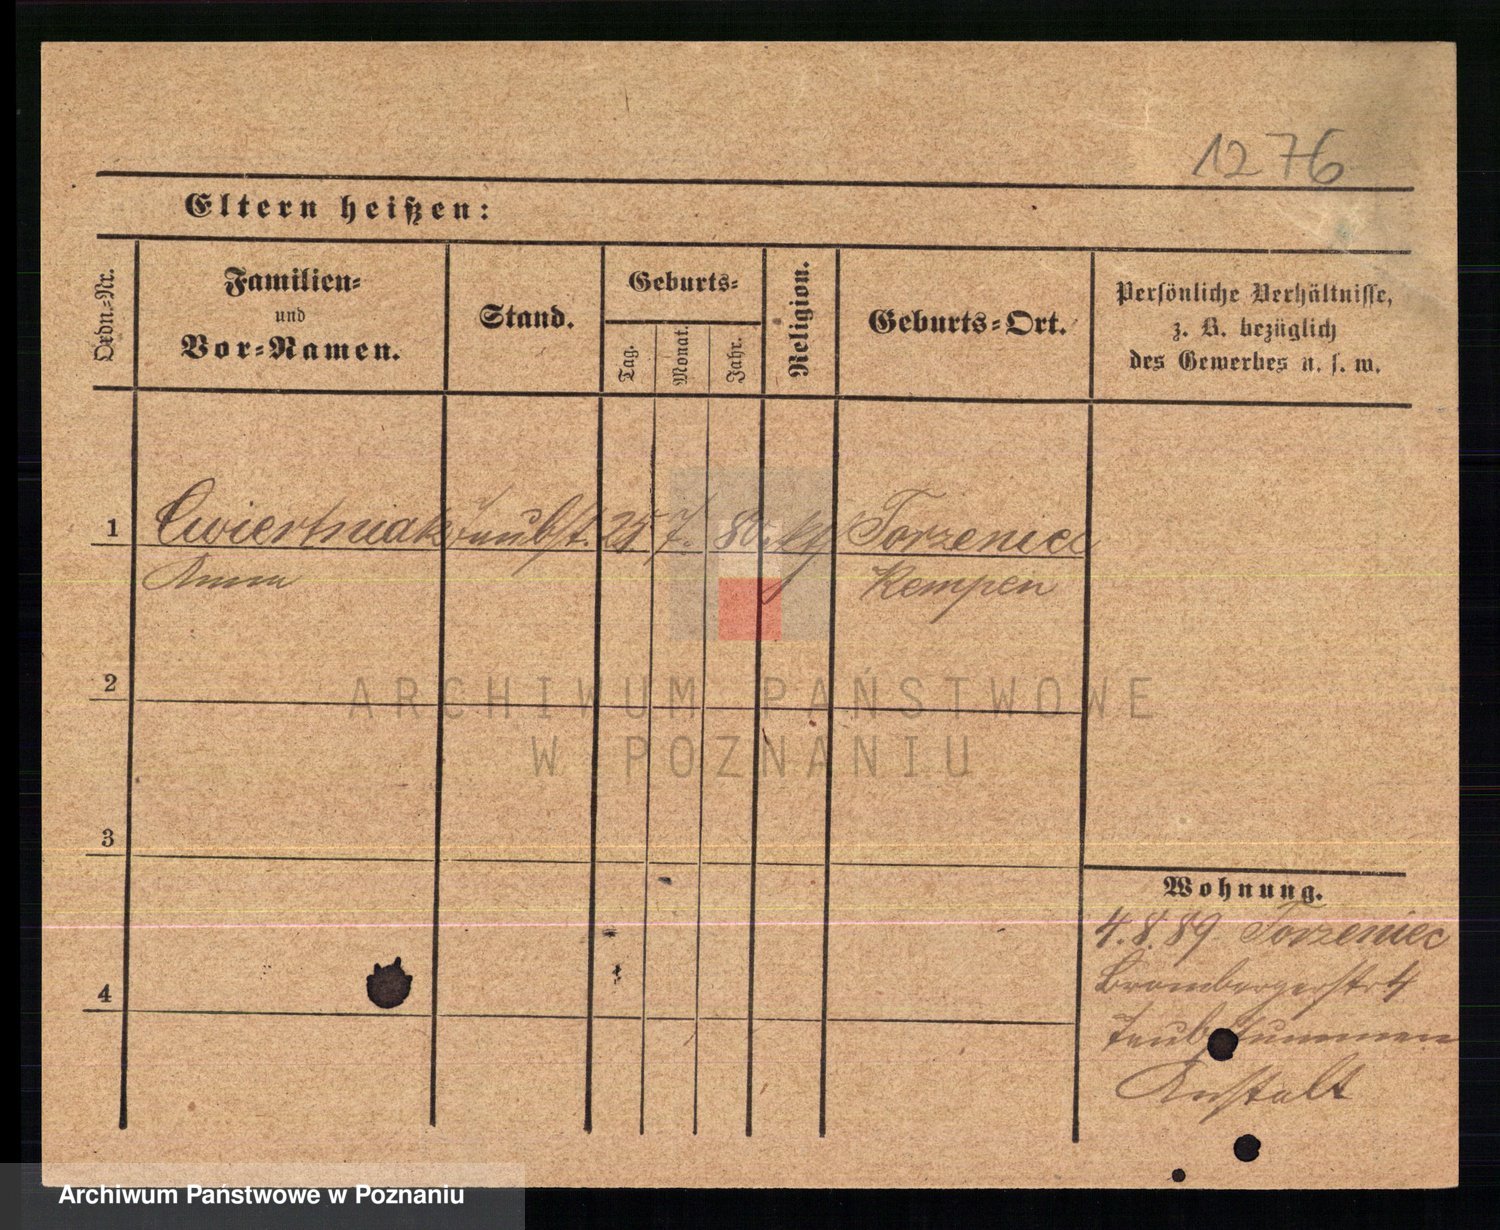 1276
Eltern heißen:
Ordn.-Nr.
Familien-
und
Vor-Namen.
Stand.
Geburts-
Tag.
Monat.
Jahr.
Religion.
Geburts-Ort.
Persönliche Verhältnisse,
z. B. bezüglich
des Gewerbes u. s. w.
1 Cwiertniak Taubst. 25 7. 80. kg Torzeniec
Anna Kempen
2
ARCHIWUM PAŃSTWOWE
W POZNANIU
3
Wohnung.
4.8.89 Torzeniec
Brombergerstr 4
Taubstummen
Anstalt
4
Archiwum Państwowe w Poznaniu